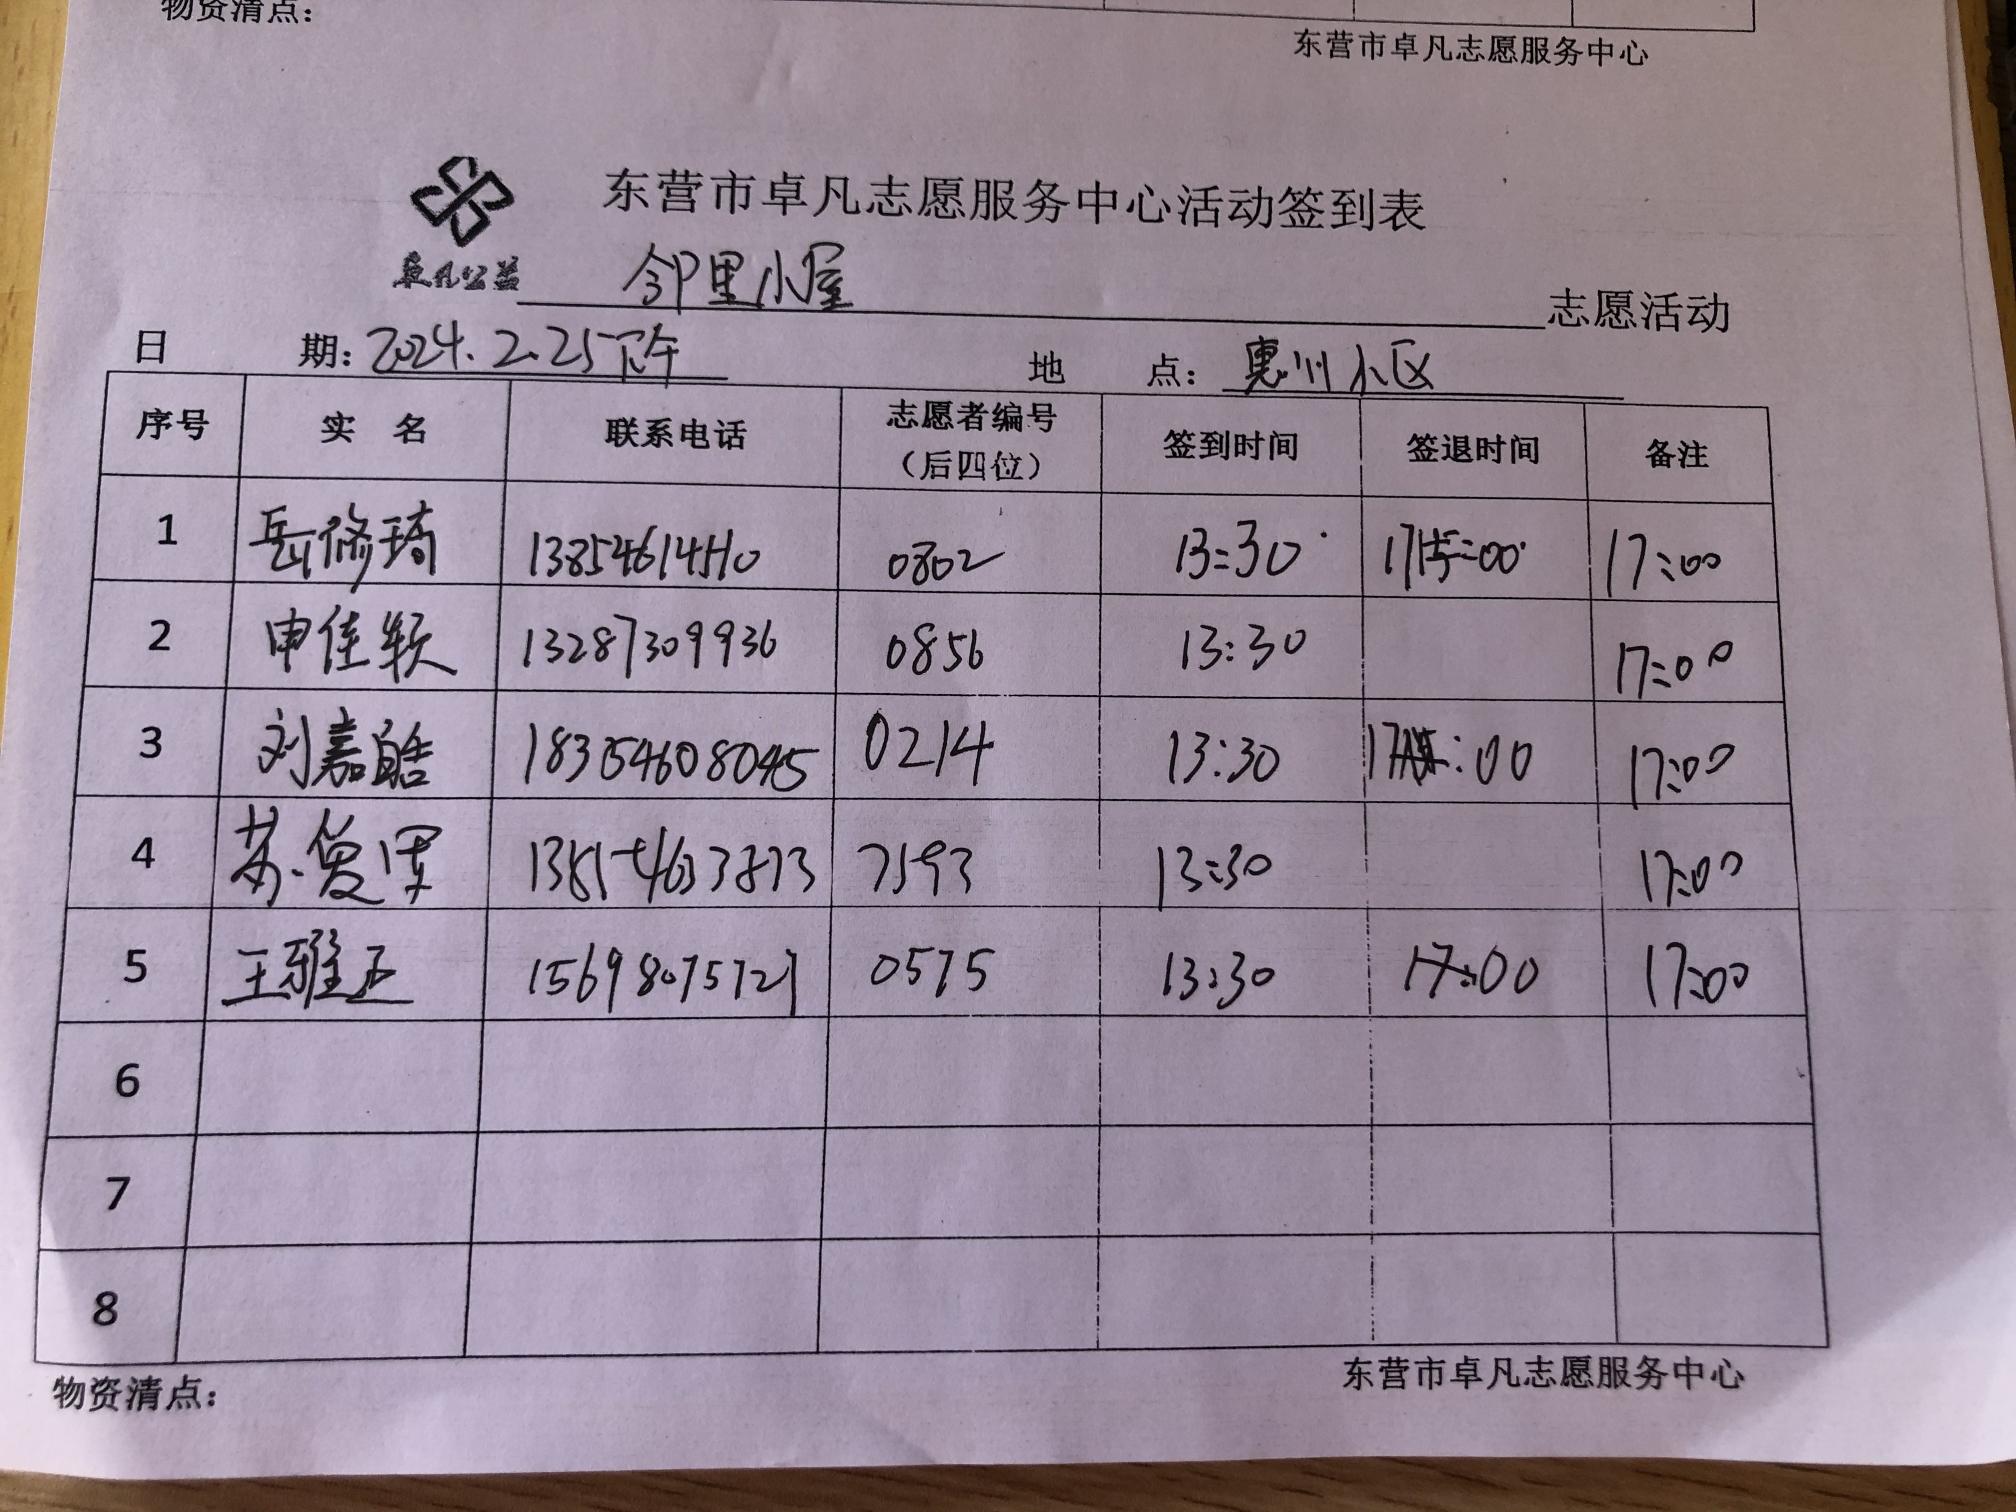 物资清点：
东营市卓凡志愿服务中心
东营市卓凡志愿服务中心活动签到表
卓凡公益 邻里小屋 志愿活动
日 期：2024.2.25下午 地 点：惠州小区
序号 实 名 联系电话 志愿者编号（后四位） 签到时间 签退时间 备注
1 岳修琦 13854614510 0802 13:30 17:00 17:00
2 申佳颖 13287309936 0856 13:30 17:00
3 刘嘉皓 18305468045 0214 13:30 17:00 17:00
4 苏 13854633873 7593 13:30 17:00
5 王雅正 15698075727 0575 13:30 17:00 17:00
6
7
8
物资清点：
东营市卓凡志愿服务中心